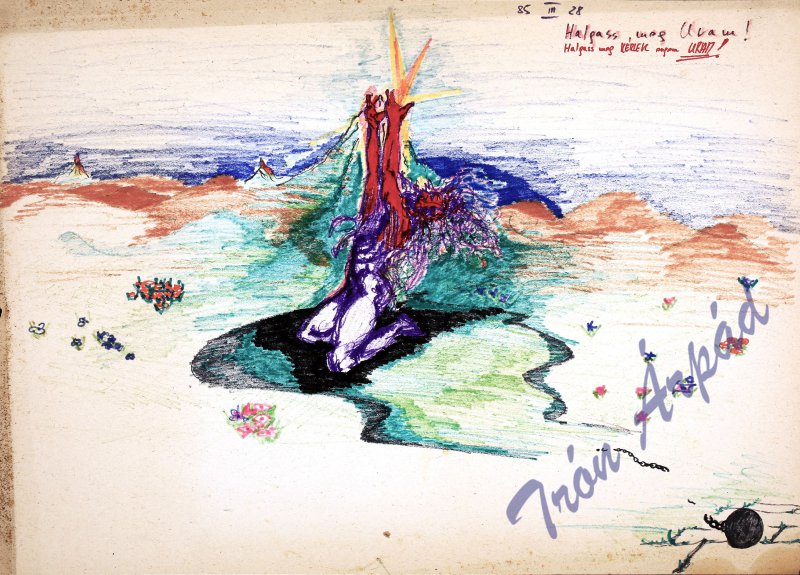 85 III 28
Halgass, meg Uram!
Halgass meg KÉRLEK
URAM!
Trón Árpád